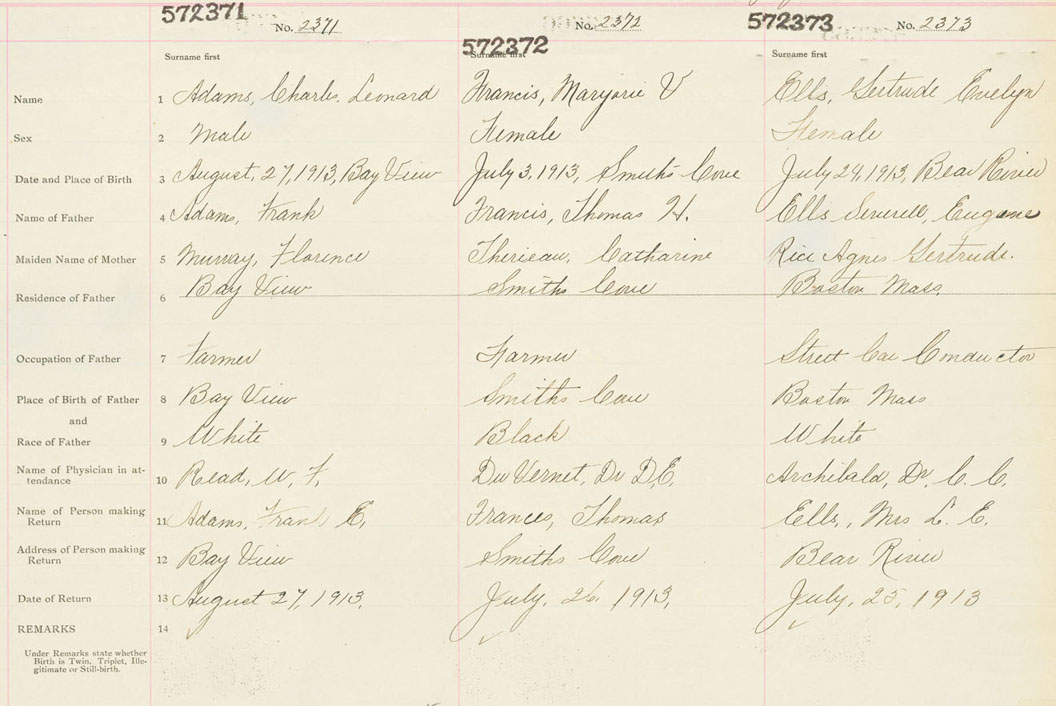 572371 No. 2371 No. 2372 572373 No. 2373
572372
Surname first Surname first Surname first
Name 1 Adams, Charles Leonard Francis, Marjorie V Ells, Gertrude Evelyn
Sex 2 Male Female Female
Date and Place of Birth 3 August, 27, 1913, Bay View July 3, 1913, Smiths Cove July 24, 1913, Bear River
Name of Father 4 Adams, Frank Francis, Thomas H. Ells Eugene
Maiden Name of Mother 5 Murray, Florence Therieau, Catharine Rice Agnes Gertrude.
Residence of Father 6 Bay View Smiths Cove Boston Mass.
Occupation of Father 7 Farmer Farmer Street Car Conductor
Place of Birth of Father 8 Bay View Smiths Cove Boston Mass
and
Race of Father 9 White Black White
Name of Physician in at-
tendance 10 Read, W. F. DuVernet, Dr D.E. Archibald, Dr. C. C.
Name of Person making
Return 11 Adams, Frank E. Frances, Thomas Ells, Mrs L. E.
Address of Person making
Return 12 Bay View Smiths Cove Bear River
Date of Return 13 August 27, 1913, July, 26 1913, July, 25, 1913
REMARKS 14
Under Remarks state whether
Birth is Twin, Triplet, Ille-
gitimate or Still-birth.